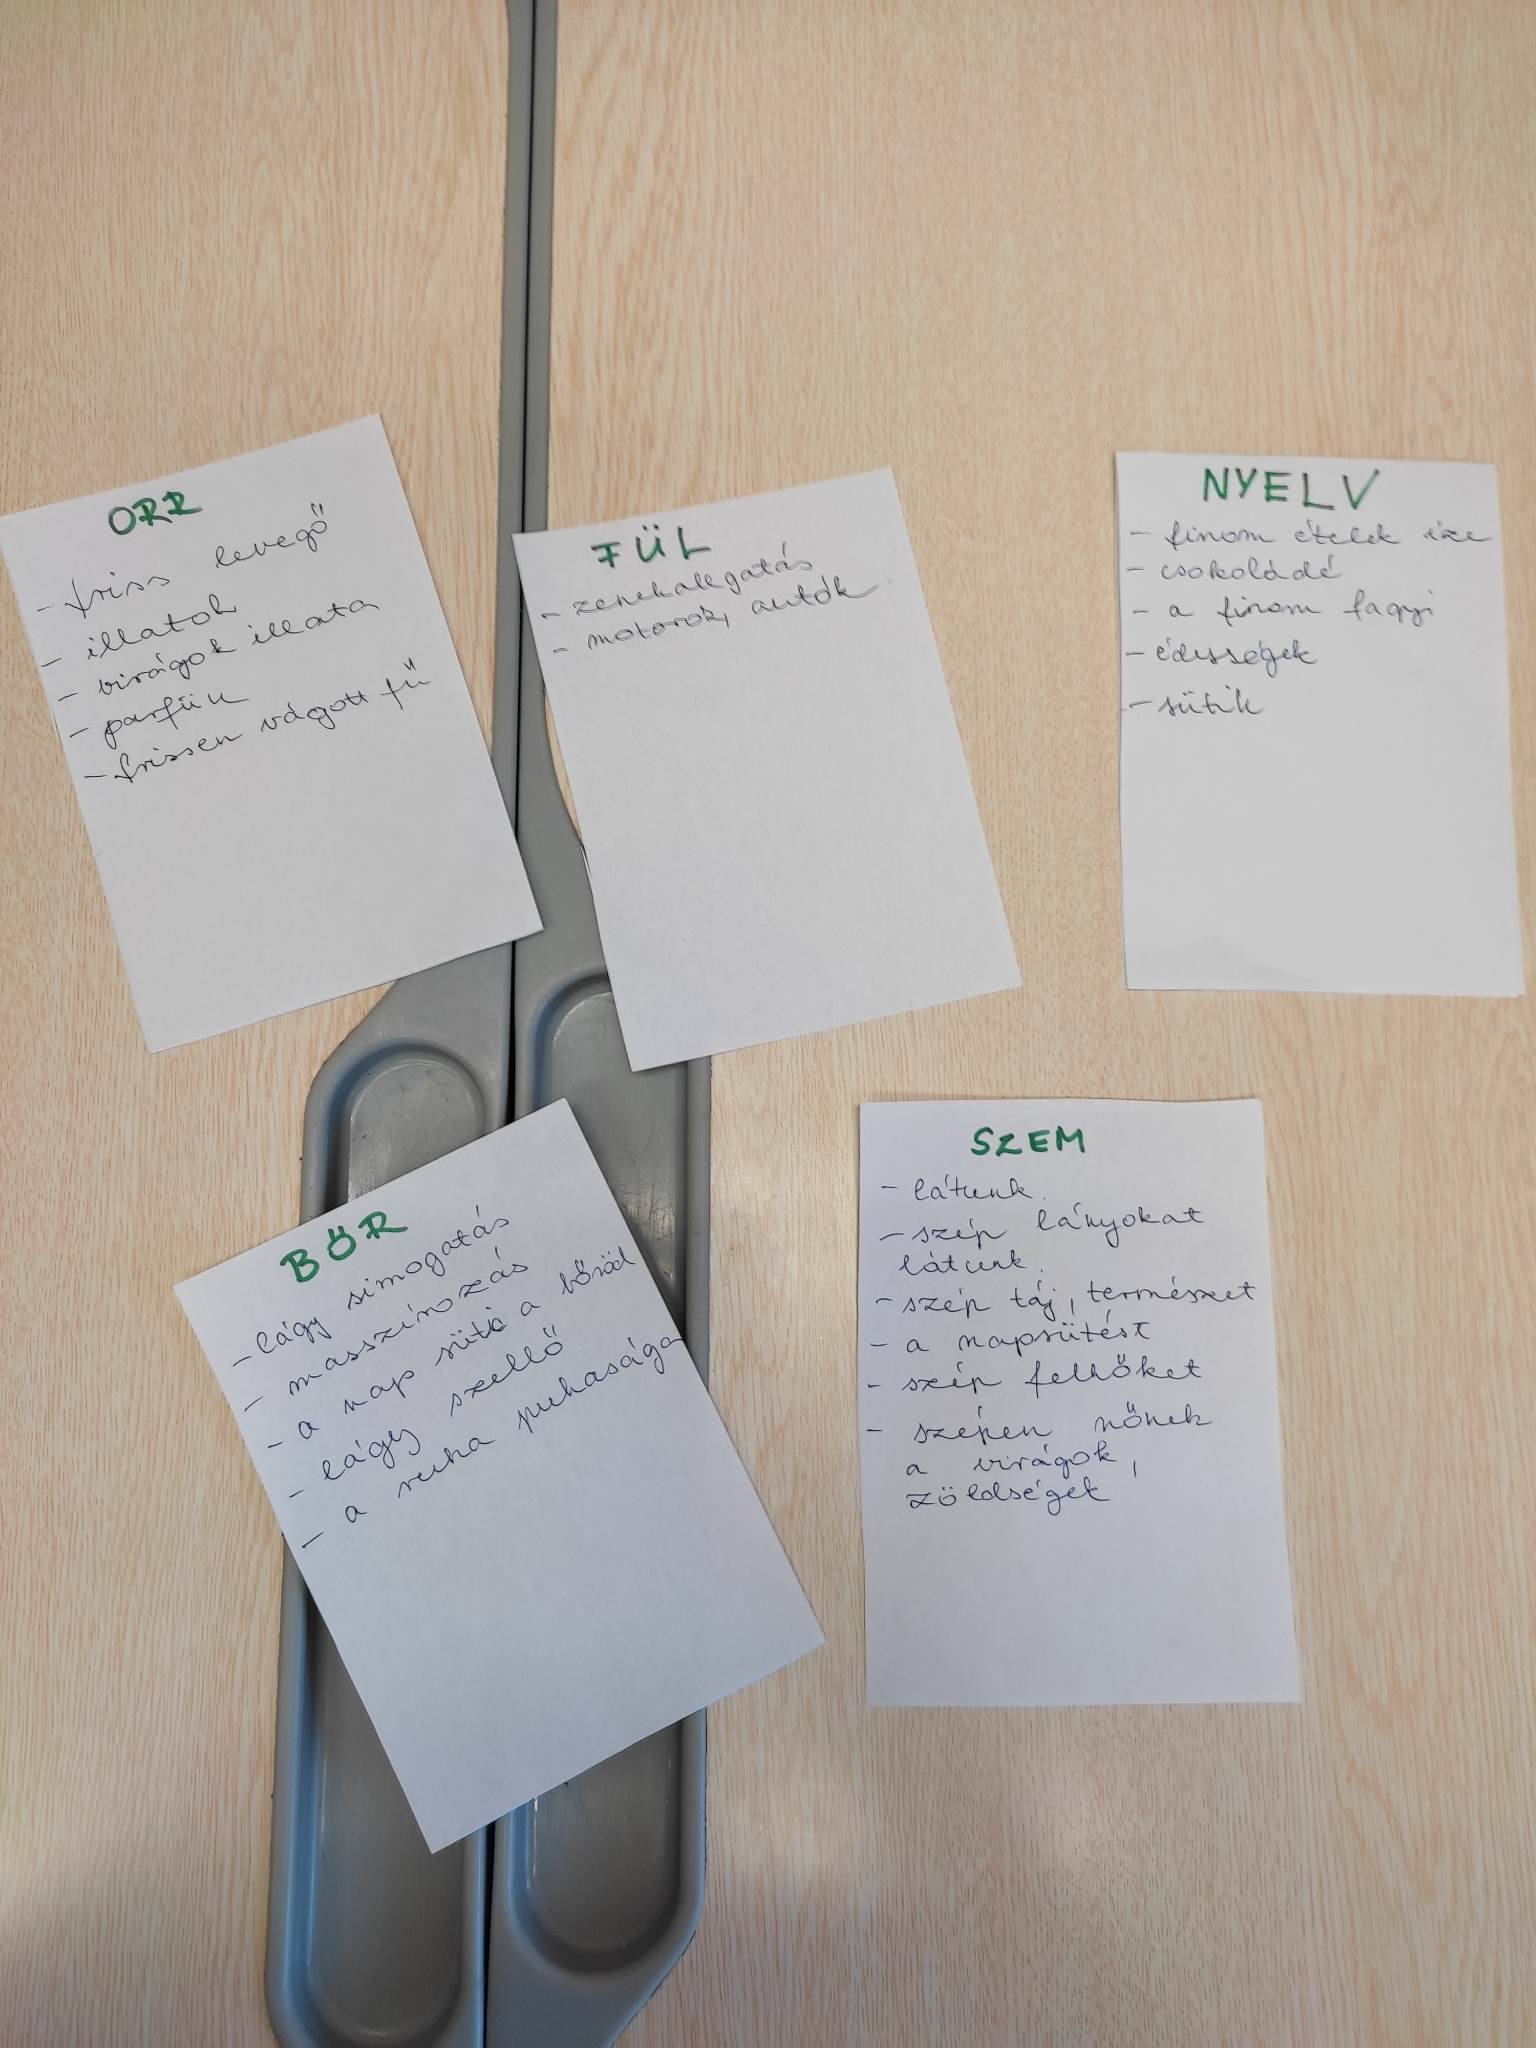 ORR
- friss levegő
- illatok
- virágok illata
- parfüm
- frissen vágott fű
FÜL
- zenehallgatás
- motorok, autók
NYELV
- finom ételek íze
- csokoládé
- a finom fagyi
- édességek
- sütik
BŐR
- lágy simogatás
- masszírozás
- a nap süti a bőröd
- lágy szellő
- a ruha puhasága
SZEM
- látunk.
- szép lányokat
látunk.
- szép táj, természet
- a napsütést
- szép felhőket
- szépen nőnek
a virágok,
zöldségek